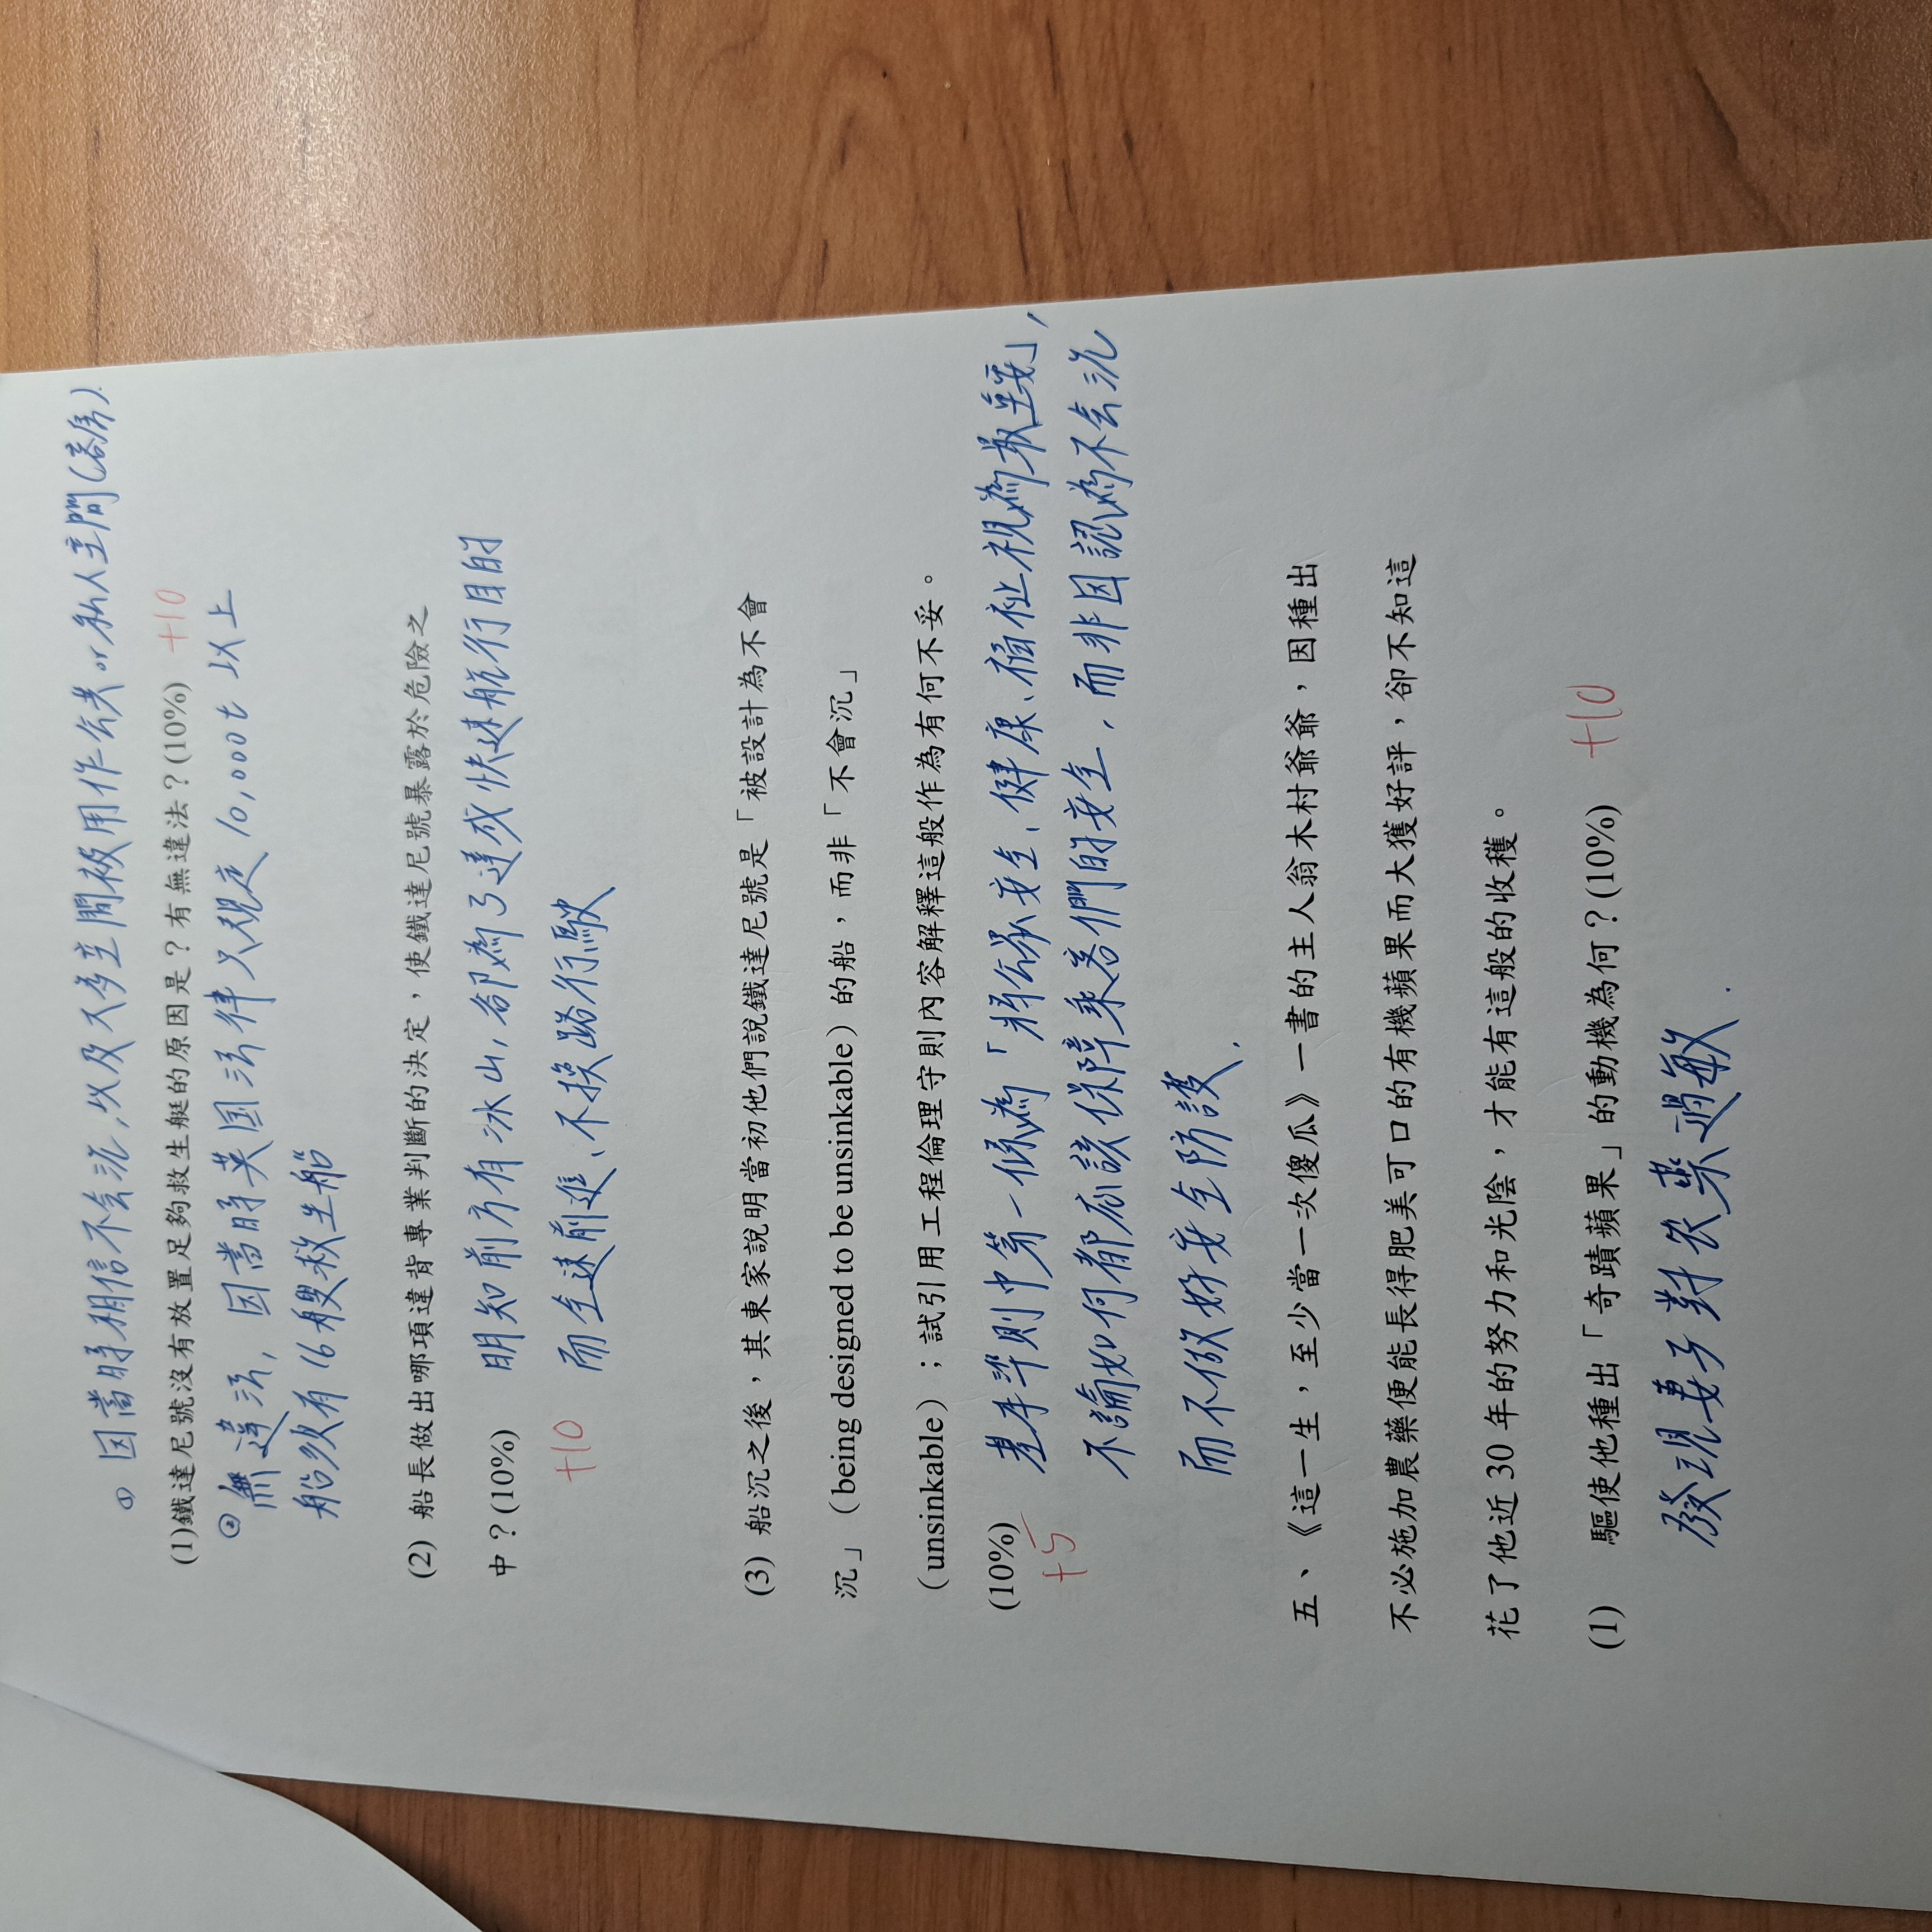 ① 因當時相信不会沉,以及大多空間被用作公共or私人空間(客房).
(1)鐵達尼號沒有放置足夠救生艇的原因是？有無違法？(10%) +10
② 無違法, 因當時英国法律只規定10,000t 以上
船須有16艘救生船
(2) 船長做出哪項違背專業判斷的決定，使鐵達尼號暴露於危險之
中？(10%) 明知前方有冰山,卻為了達成快速航行目的
+10 而全速前進、不換路行駛
(3) 船沉之後，其東家說明當初他們說鐵達尼號是「被設計為不會
沉」（being designed to be unsinkable）的船，而非「不會沉」
（unsinkable）；試引用工程倫理守則內容解釋這般作為有何不妥。
(10%) 基本準則中第一條為「將公眾安全、健康、福祉視為最重要」,
+5 不論如何都應該保障乘客們的安全,而非因認為不会沉
而不做好安全防護.
五、《這一生，至少當一次傻瓜》一書的主人翁木村爺爺，因種出
不必施加農藥便能長得肥美可口的有機蘋果而大獲好評，卻不知這
花了他近 30 年的努力和光陰，才能有這般的收穫。
(1) 驅使他種出「奇蹟蘋果」的動機為何？(10%) +10
發現妻子對农藥過敏.